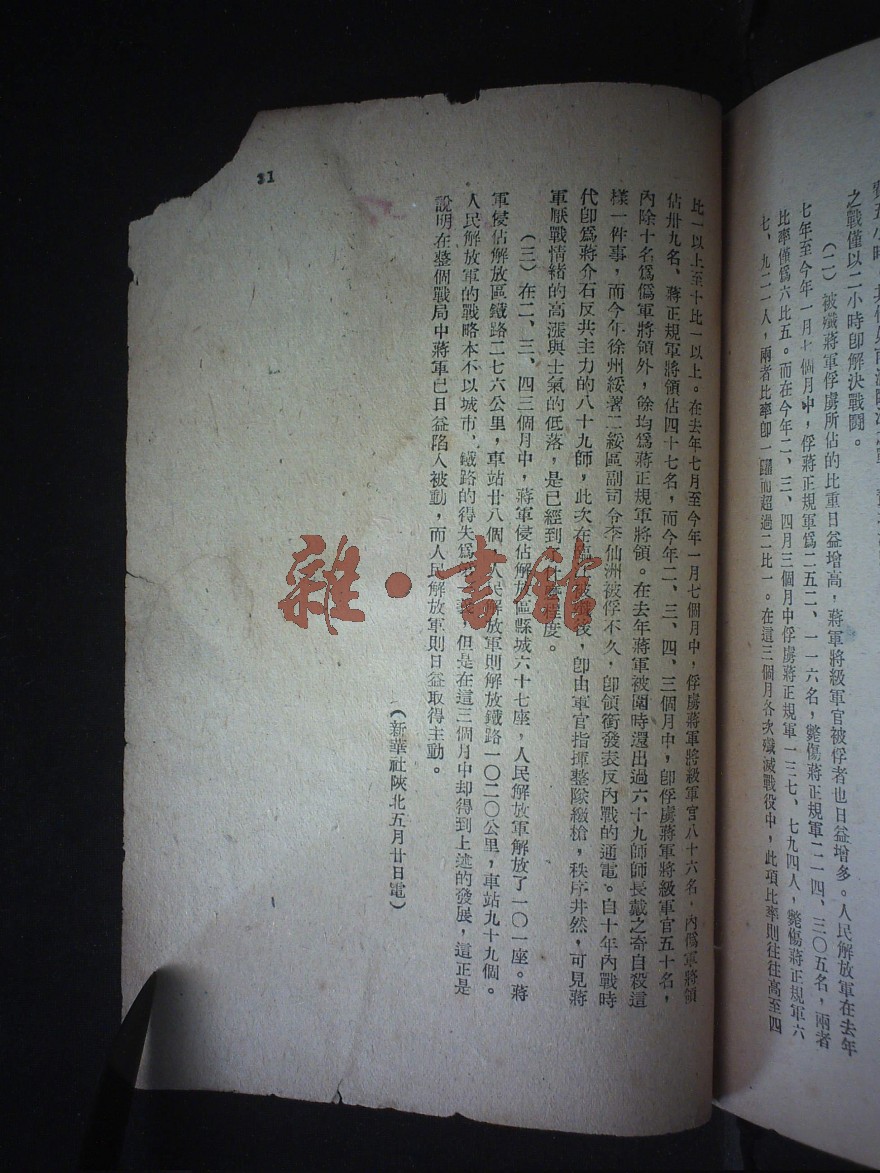 之戰僅以二小時卽解決戰鬪。
(二)被殲蔣軍俘虜所佔的比重日益增高,蔣軍將級軍官被俘者也日益增多。人民解放軍在去年
七年至今年一月七個月中,俘蔣正規軍爲二五二、一一六名,斃傷蔣正規軍二一四、三〇五名,兩者
比率僅爲六比五。而在今年二、三、四月三個月中俘虜蔣正規軍一三七、七九四人,斃傷蔣正規軍六
七、九二一人,兩者比率卽一躍而超過二比一。在這三個月各次殲滅戰役中,此項比率則往往高至四
比一以上至十比一以上。在去年七月至今年一月七個月中,俘虜蔣軍將級軍官八十六名,內僞軍將領
佔卅九名、蔣正規軍將領佔四十七名,而今年二、三、四、三個月中,卽俘虜蔣軍將級軍官五十名,
內除十名爲僞軍將領外,餘均爲蔣正規軍將領。在去年蔣軍被圍時還出過六十九師師長戴之奇自殺這
樣一件事,而今年徐州綏署二綏區副司令李仙洲被俘不久,卽領銜發表反內戰的通電。自十年內戰時
代卽爲蔣介石反共主力的八十九師,此次在 被殲後,卽由軍官指揮整隊繳槍,秩序井然,可見蔣
軍厭戰情緒的高漲與士氣的低落,是已經到 程度。
(三)在二、三、四三個月中,蔣軍侵佔解放區縣城六十七座,人民解放軍解放了一〇一座。蔣
軍侵佔解放區鐵路二七六公里,車站廿八個,人民解放軍則解放鐵路一〇二〇公里,車站九十九個。
人民解放軍的戰略本不以城市、鐵路的得失爲 ,但是在這三個月中却得到上述的發展,這正是
說明在整個戰局中蔣軍已日益陷入被動,而人民解放軍則日益取得主動。
(新華社陝北五月廿日電)
31
雜·書館